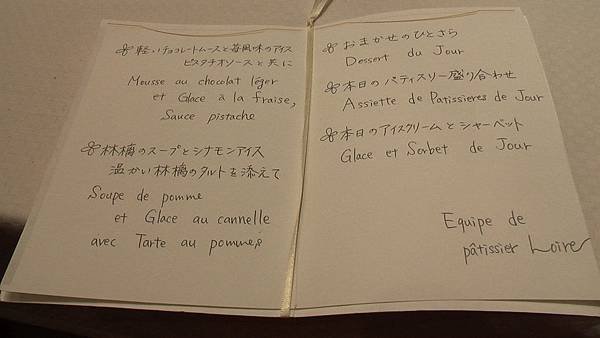 軽いチョコレートムースと苺風味のアイス
ピスタチオソースと共に
Mousse au chocolat léger
et Glace à la fraise,
Sauce pistache
林檎のスープとシナモンアイス
温かい林檎のタルトを添えて
Soupe de pomme
et Glace au cannelle
avec Tarte au pommes
おまかせのひとさら
Dessert du Jour
本日のパティスリー盛り合わせ
Assiette de Patissieres de Jour
本日のアイスクリームとシャーベット
Glace et Sorbet de Jour
Equipe de
pâtissier Loire